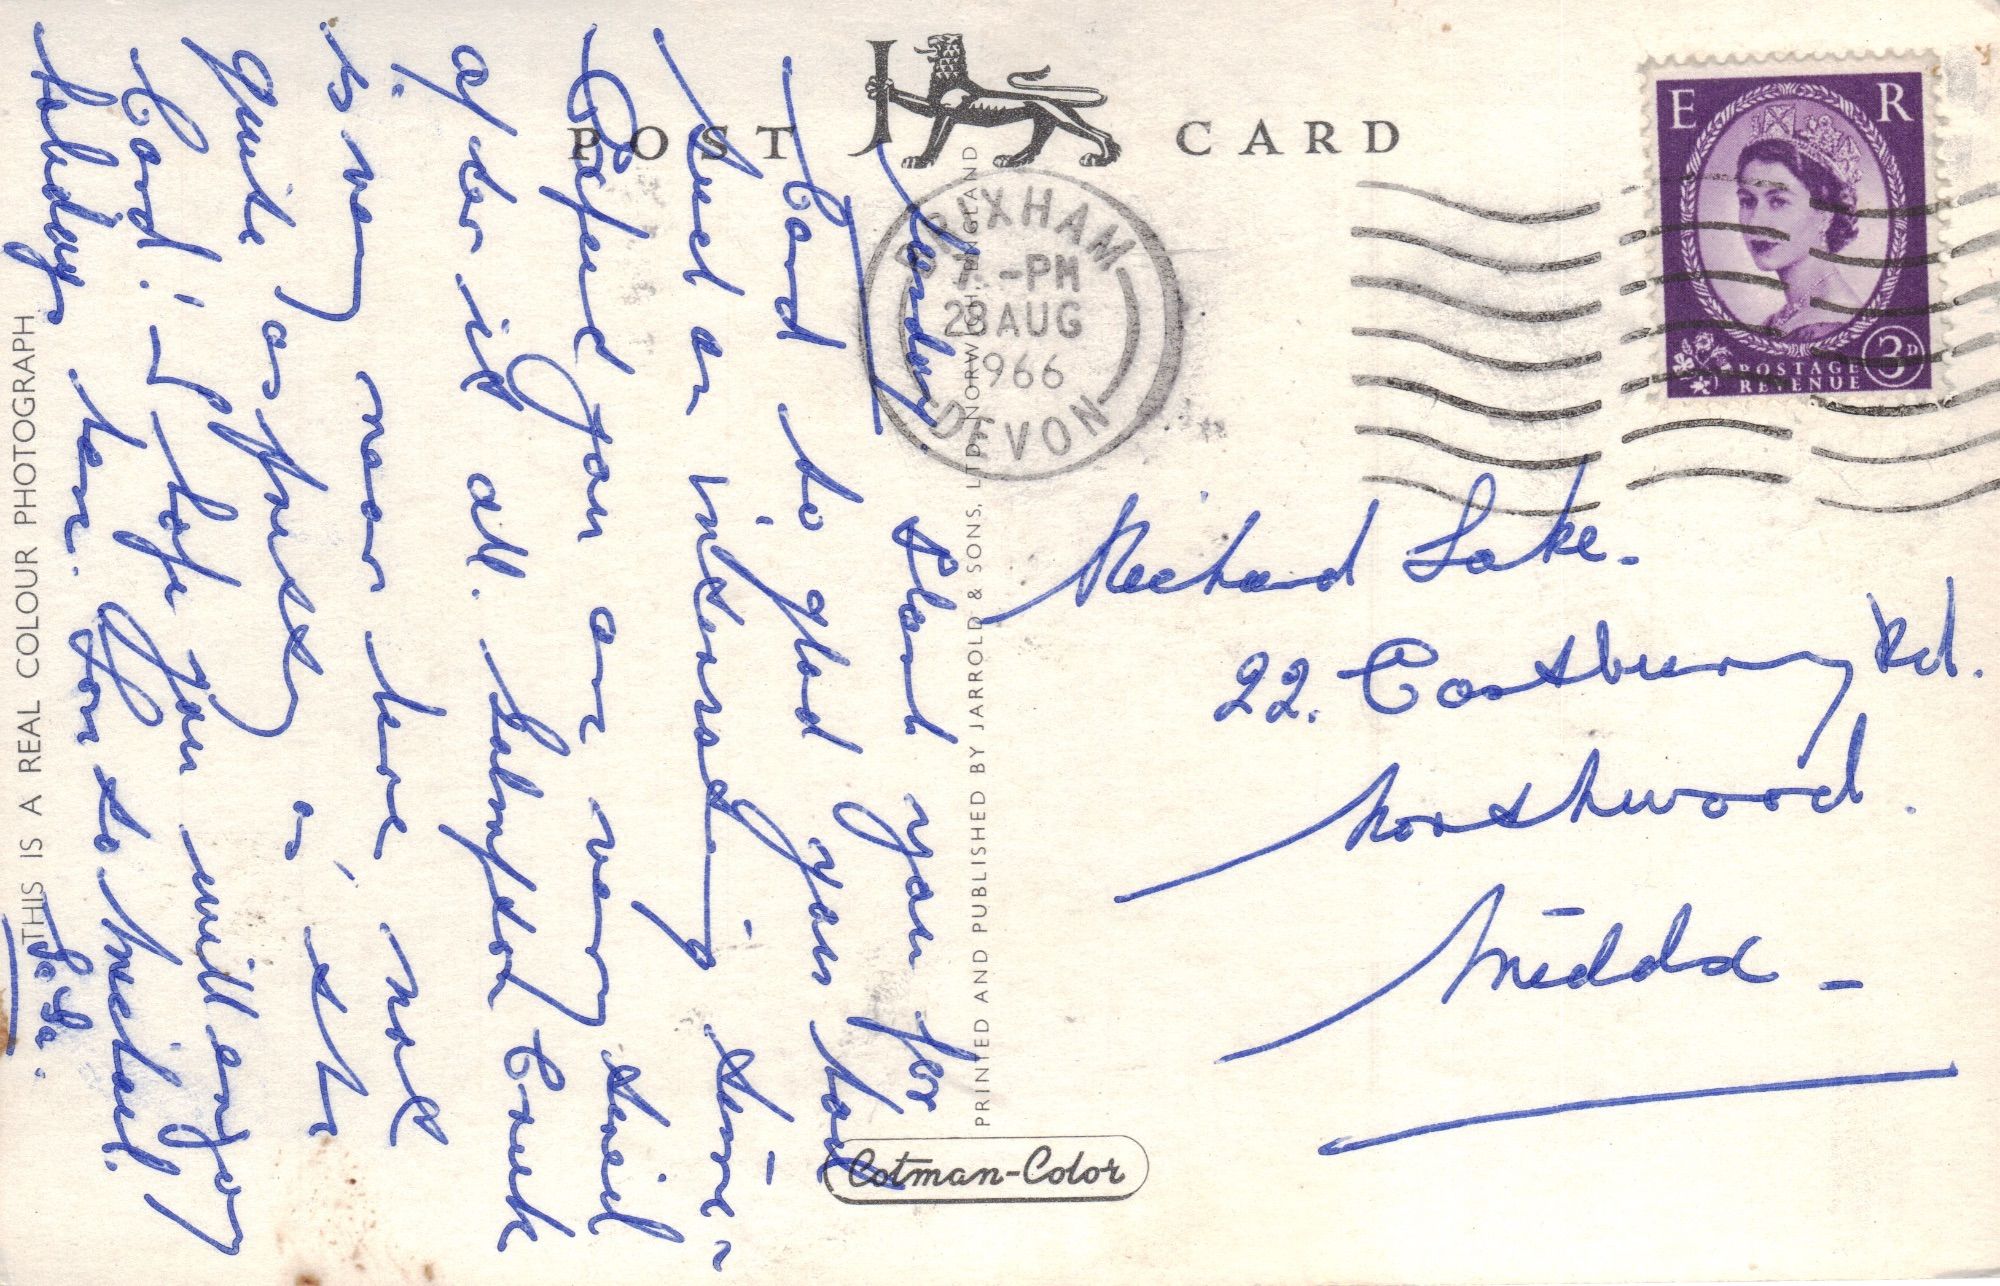 POST CARD
BRIXHAM
7 -PM
28 AUG
1966
DEVON
E R
POSTAGE
REVENUE
3D
THIS IS A REAL COLOUR PHOTOGRAPH
PRINTED AND PUBLISHED BY JARROLD & SONS, LTD, NORWICH, ENGLAND
Cotman-Color
Sunday
Thank you for
Card so glad you had
such an interesting time -
Before you are very tired
after it all. Salmpton Creek
is very near here, not
quite as pretty as the
Card! I hope you will enjoy
holidays here.
Richard Lake.
22. Eastbury Rd.
Northwood.
Middx -